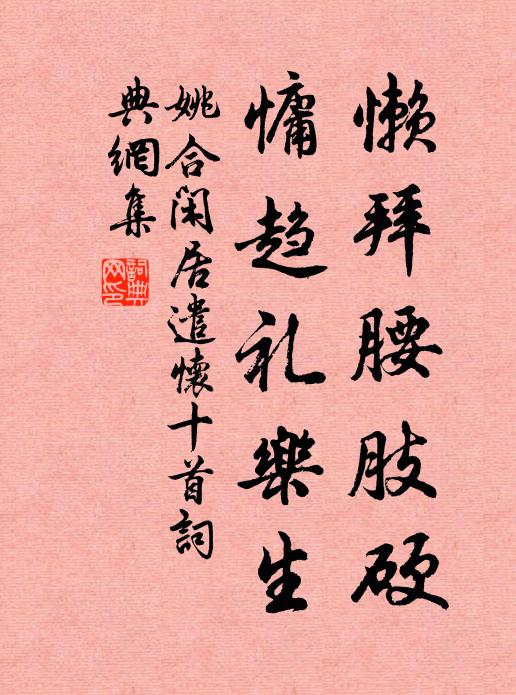 懒拜腰肢硬
慵趋礼樂生
姚合闲居遣懷十首詞
典網集
詞典
网印